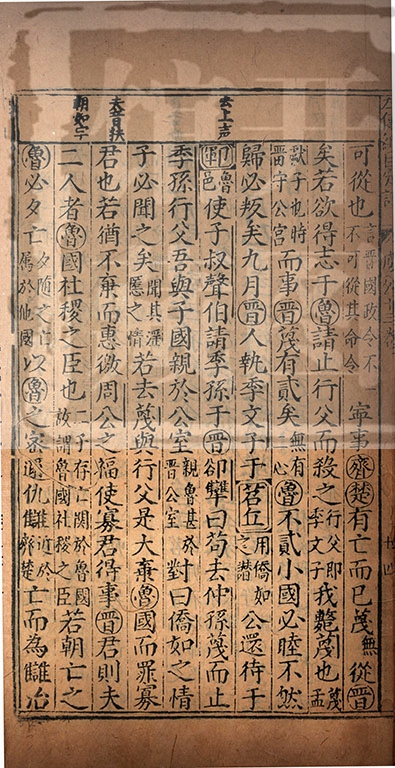 可從也言晉國政令不不可從其命令寧事齊楚有亡而已蔑無從晉
矣若欲得志于魯請止行父而殺之行父即季文子我斃蔑也蔑孟
獻子也時晋守公宮而事晉蔑有貳矣無有心魯不貳小國必睦不然
歸必叛矣九月晉人執季文子于苕丘用僑如之譖公還待于
去上声
鄆魯邑使子叔聲伯請季孫于晉郤犨曰苟去仲孫蔑而止
季孫行父吾與子國親於公室親魯甚於晉公室對曰僑如之情
子必聞之矣聞其淫慝之情若去蔑與行父是大棄魯國而罪寡
夫音扶
君也若猶不棄而惠徼周公之福使寡君得事晉君則夫
朝如字
二人者魯國社稷之臣也二子存亡關於魯國故謂魯國社稷之臣若朝亡之
魯必夕亡夕随之亡屬於他國以魯之密邇仇讎近於齊楚亡而為讎治